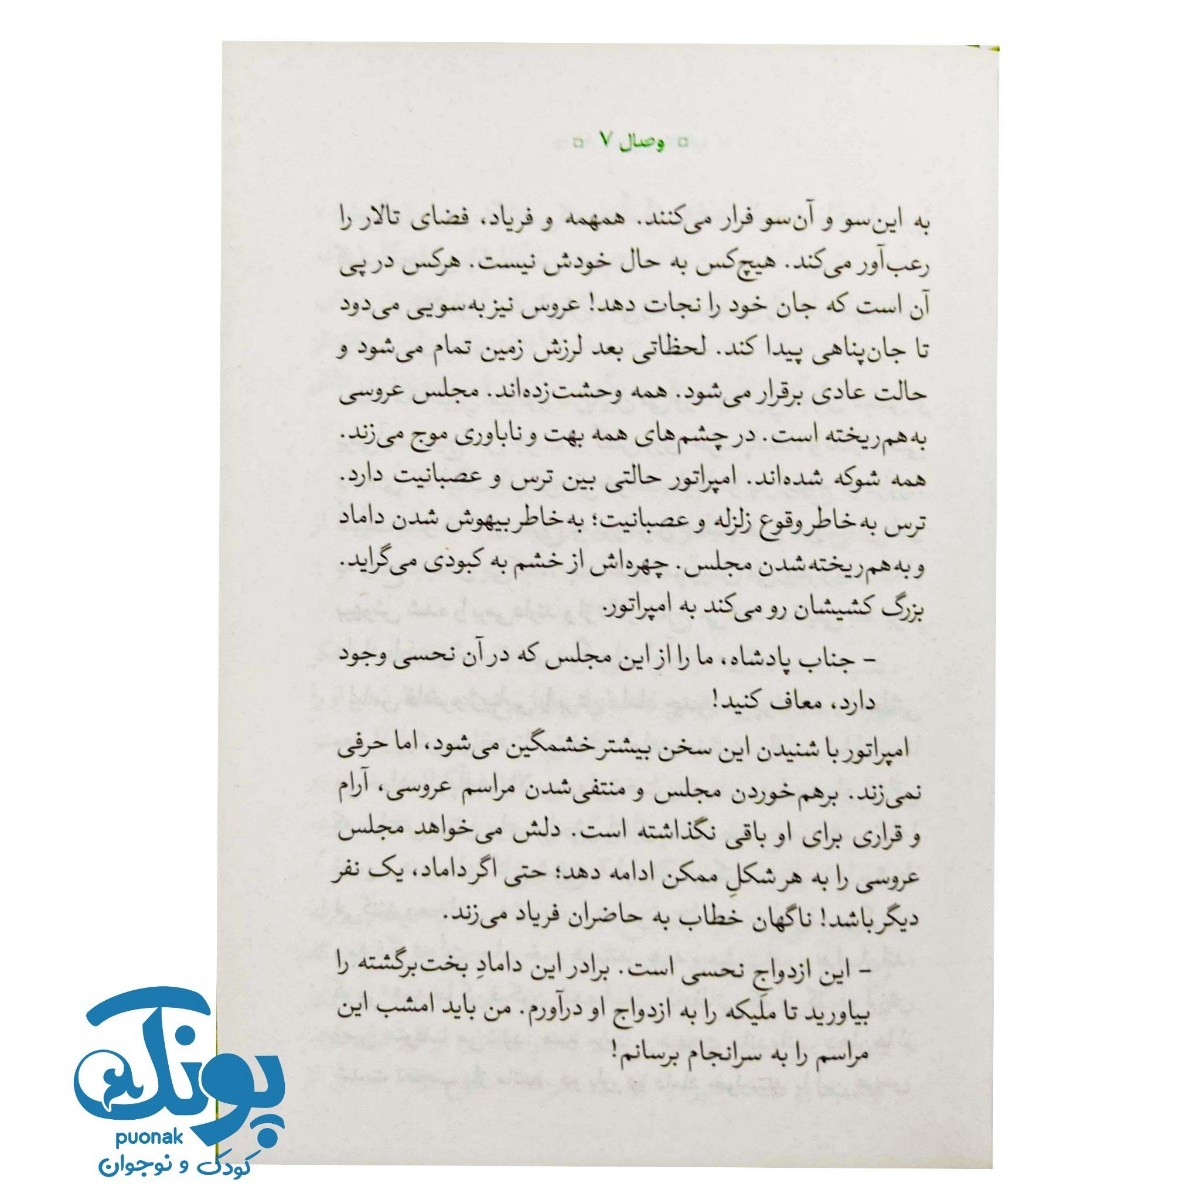 وصال ۷
به این‌سو و آن‌سو فرار می‌کنند. همهمه و فریاد، فضای تالار را
رعب‌آور می‌کند. هیچ‌کس به حال خودش نیست. هرکس در پی
آن است که جان خود را نجات دهد! عروس نیز به‌سویی می‌دود
تا جان‌پناهی پیدا کند. لحظاتی بعد لرزش زمین تمام می‌شود و
حالت عادی برقرار می‌شود. همه وحشت‌زده‌اند. مجلس عروسی
به‌هم‌ریخته است. در چشم‌های همه بهت و ناباوری موج می‌زند.
همه شوکه شده‌اند. امپراتور حالتی بین ترس و عصبانیت دارد.
ترس به‌خاطر وقوع زلزله و عصبانیت؛ به‌خاطر بیهوش شدن داماد
و به‌هم‌ریخته‌شدن مجلس. چهره‌اش از خشم به کبودی می‌گراید.
بزرگ کشیشان رو می‌کند به امپراتور.
– جناب پادشاه، ما را از این مجلس که در آن نحسی وجود
دارد، معاف کنید!
امپراتور با شنیدن این سخن بیشتر خشمگین می‌شود، اما حرفی
نمی‌زند. برهم‌خوردن مجلس و منتفی‌شدن مراسم عروسی، آرام
و قراری برای او باقی نگذاشته است. دلش می‌خواهد مجلس
عروسی را به هر شکلِ ممکن ادامه دهد؛ حتی اگر داماد، یک نفر
دیگر باشد! ناگهان خطاب به حاضران فریاد می‌زند.
– این ازدواجِ نحسی است. برادر این دامادِ بخت‌برگشته را
بیاورید تا ملیکه را به ازدواج او درآورم. من باید امشب این
مراسم را به سرانجام برسانم!
پونک
puonak
کودک و نوجوان